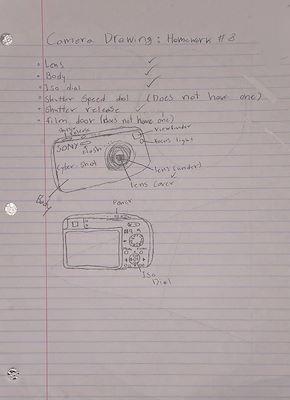 Camera Drawing: Homework #3
• Lens ✓
• Body ✓
• Iso dial ✓
• Shutter Speed dial (Does not have one)
• Shutter release ✓
• Film door (does not have one)
Shutter
release
viewfinder
focus light
SONY
flash
Cyber-shot
lens (under)
lens cover
Body
Power
Iso
Dial